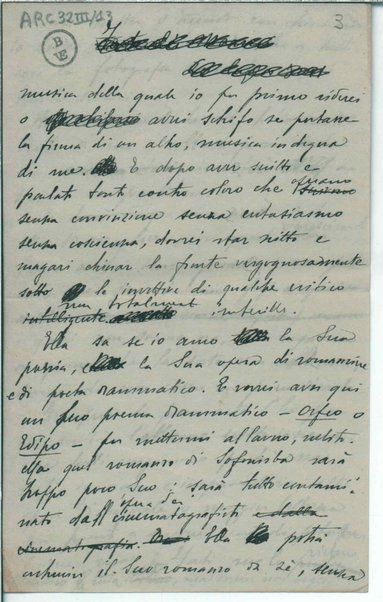 ARC 32 III/13
3
B
VE
musica della quale io per primo riderei
o avrei schifo se portasse
la firma di un altro, musica indegna
di me. E dopo aver scritto e
parlato tanto contro coloro che
senza convinzione senza entusiasmo
senza coscienza, dovrei star zitto e
magari chinar la fronte vergognosamente
sotto le invettive di qualche critico
non totalmente
intelligente imbecille.
Ella sa se io amo la Sua
poesia, la Sua opera di romanziere
e di poeta drammatico. E vorrei aver qui
un Suo poema drammatico – Orfeo o
Edipo – per mettermi al lavoro, subito.
Ma quel romanzo di Sofonisba sarà
troppo poco Suo: sarà tutto contami-
opera dei
nato dall' cinematografisti e dalla
cinematografia. Ella potrà
scrivere il Suo romanzo da sè, senza